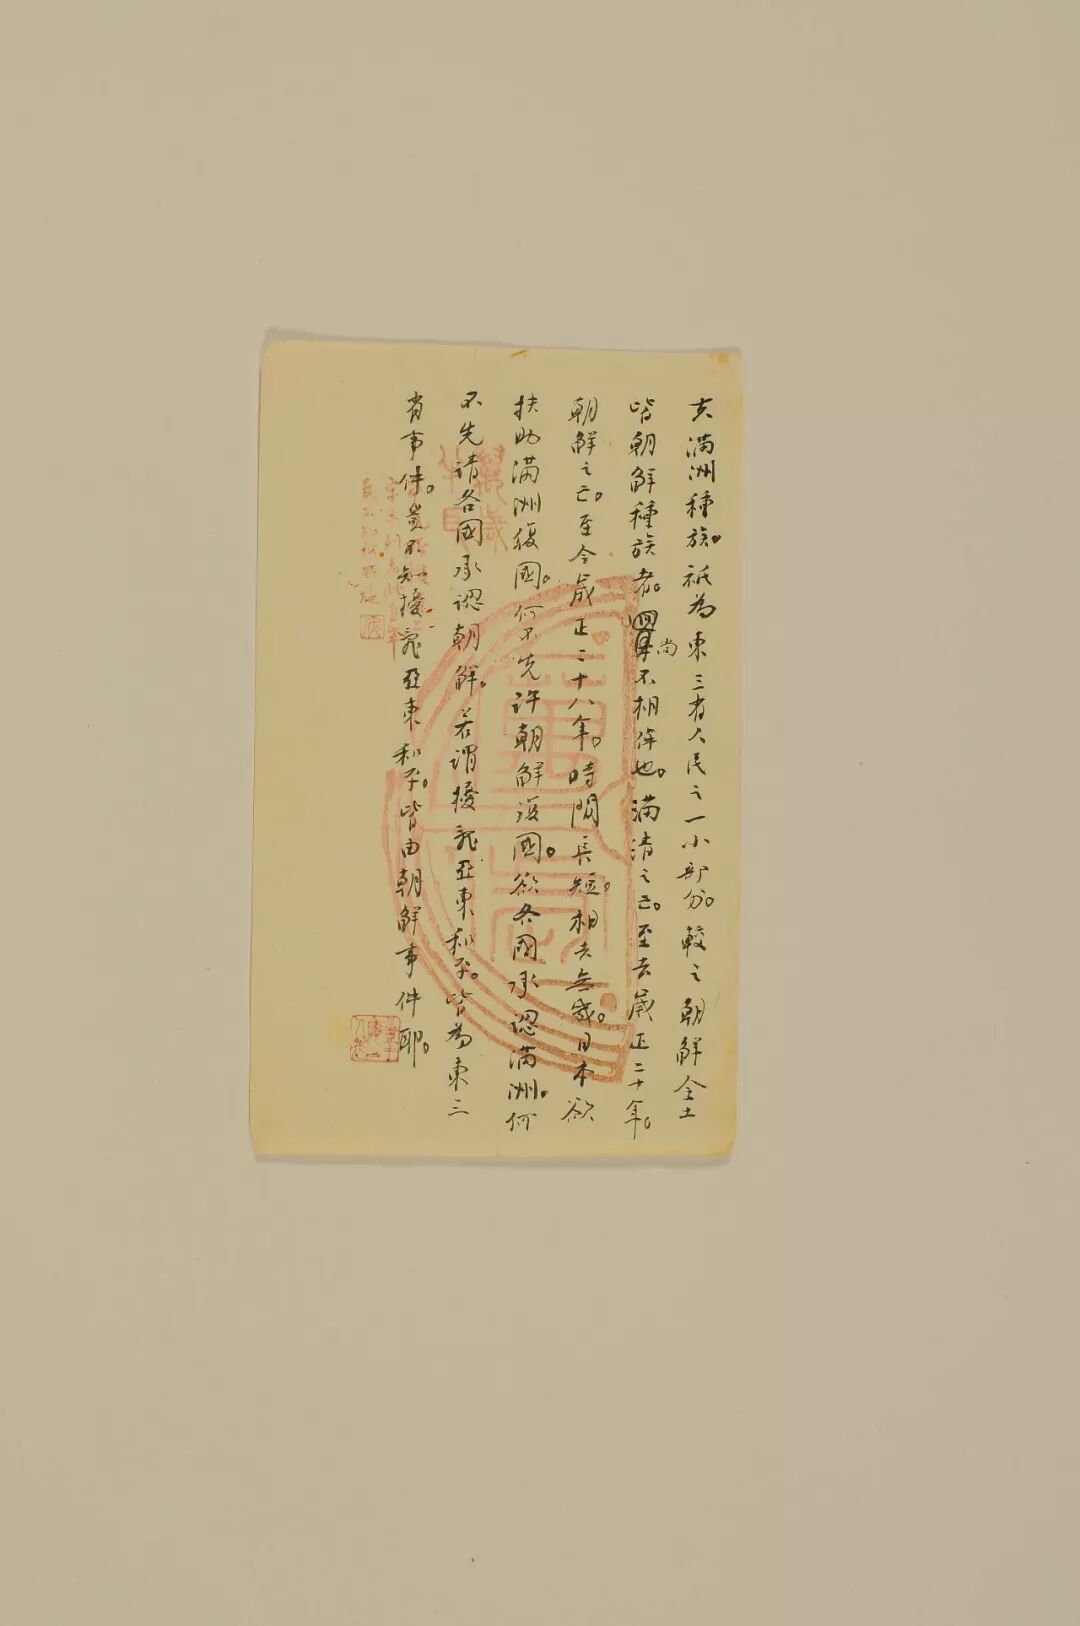 夫满洲種族。祇為東三省人民之一小部分。較之朝鮮全土
皆朝鮮種族者。尚不相侔也。满清之亡。至去歲正二十年。
朝鮮之亡。至今歲正二十八年。時間長短。相去無幾。日本欲
扶助满洲復國。何不先許朝鮮復國。欲各國承認满洲。何
不先請各國承認朝鮮。若謂擾亂亞東和平。皆為東三
省事件。豈不知擾亂亞東和平。皆由朝鮮事件耶。
萬歲